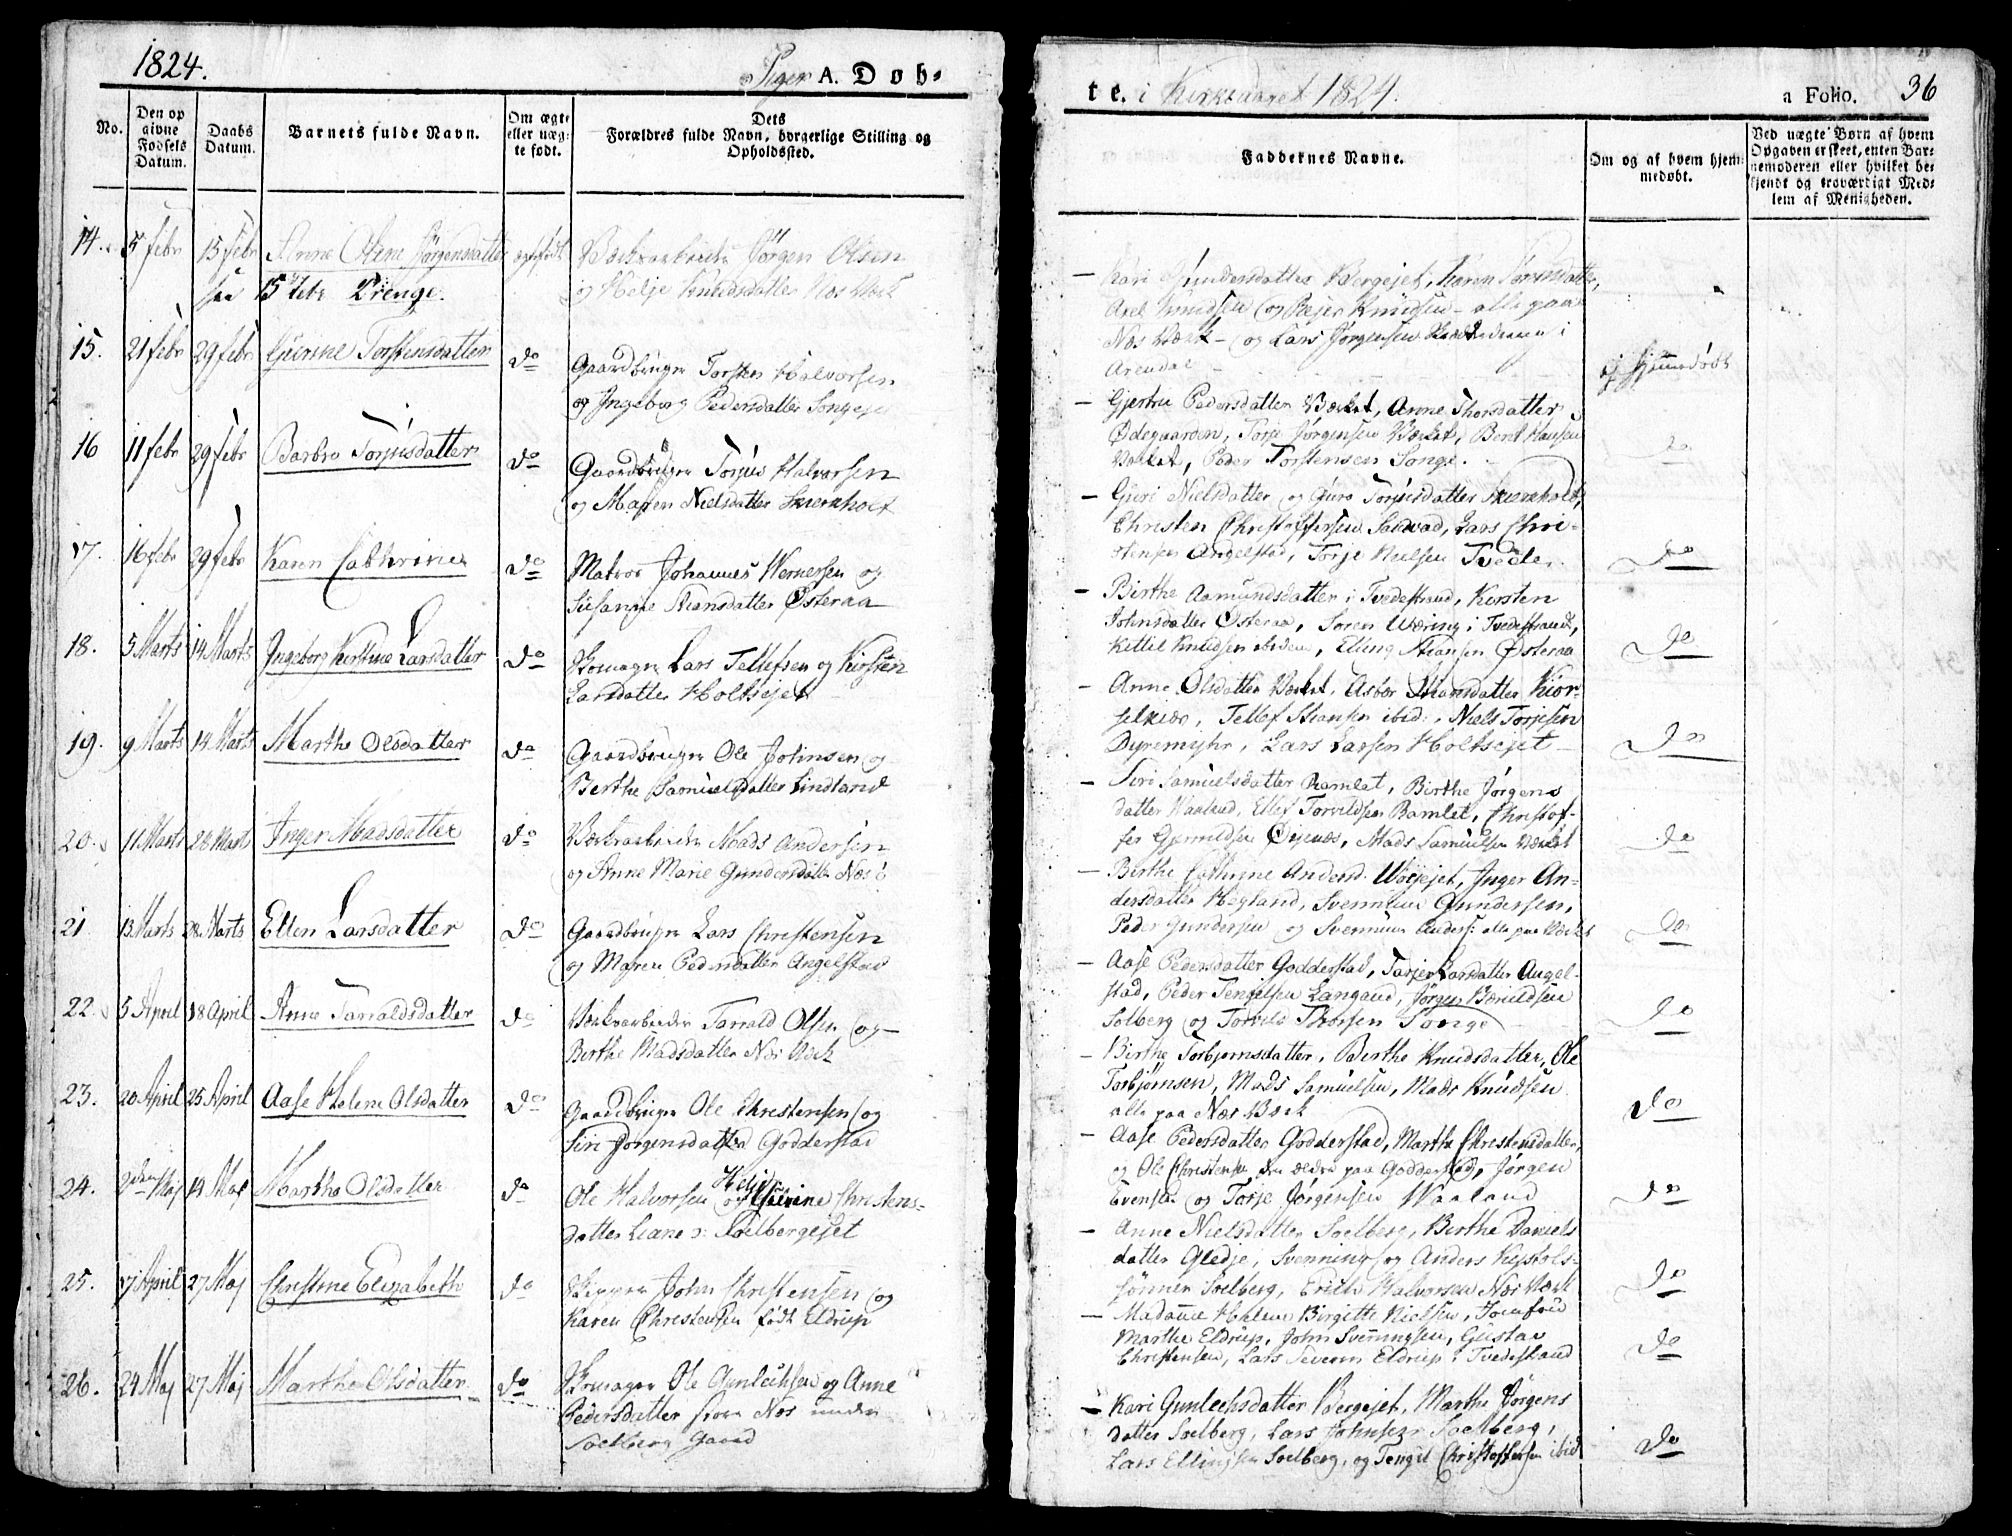 1824.
Piger A. Døb-
No.
Den op
givne
Fødsels
Datum.
Daabs
Datum.
Barnets fulde Navn.
Om ægte
eller uæg-
te født.
Dets
Forældres fulde Navn, borgerlige Stilling og
Opholdssted.
14. 5 febr 15 febr Anne Oline Jørgensdatter ægtefødt Værksarbeider Jørgen Olsen
see 15 febr Drenge. og Helje Knudsdatter Næs Værk
15. 21 febr 29 febr Gurine Torstensdatter do Gaardbruger Torsten Halvorsen
og Ingeborg Pedersdatter Songejet
16 11 febr 29 febr Barbro Torjusdatter do Gaardbruger Torjus Halvorsen
og Maren Nielsdatter Skierkholt
17. 16 febr 29 febr Karen Cathrine do Matros Johannes Wernersen og
Susanne Stiansdatter Østeraa
18. 5 Marts 14 Marts Ingeborg Kirstine Larsdatter do Skomager Lars Tellefsen og Kirsten
Larsdatter Holtsejet
19. 9 Marts 14 Marts Marthe Olsdatter do Gaardbruger Ole Johnsen og
Berthe Samuelsdatter Lindland
20. 11 Marts 28 Marts Inger Madsdatter do Værksarbeider Mads Andersen
og Anne Marie Gundersdatter Næs
21 13 Marts 28 Marts Ellen Larsdatter do Gaardbruger Lars Christensen
og Maren Pedersdatter Angelstad
22. 5 April 18 April Anne Tarraldsdatter do Værksarbeider Tarrald Olsen og
Birthe Madsdatter Næs Værk
23. 20 April 25 April Aase Helene Olsdatter do Gaardbruger Ole Christensen og
Siri Jørgensdatter Godderstad
24. 2den Maj 19 Maj Marthe Olsdatter do Ole Halvorsen og Christens-
datter Liane Soelbergejet
25. 17 April 27 Maj Christine Elizabeth do Skipper John Christensen og
Karen Christensen født Eldrup
26. 24 Maj 27 Maj Marthe Olsdatter do Skomager Ole Gunleiksen og Anne
Pedersdatter Næs under
Soelberg Gaard
te. i Kirkeaaret 1824.
a Folio. 36
Faddernes Navne.
Om og af hvem hjem-
medøbt.
Ved uægte Børn af hvem
Opgaven er skeet, enten Bar-
nemoderen eller hvilket be-
kjendt og troværdigt Med-
lem af Menigheden.
— Kari Gundersdatter Bergejet, Karen
Axel Knudsen og Rejer Knudsen — alle paa
Næs Værk — og Lars Jørgensen i
Arendal — ej hjemmedøbt
— Gjertru Pedersdatter Værket, Anne Thorsdatter
Ødegaarden, Torje Jørgensen Værket, Bent Hansen
Værket, Peder Torstensen Songe. do
— Guri Nielsdatter og Guro Torjusdatter Skierkholt,
Christen Christophersen Sandvad, Lars Chri-
stensen Angelstad, Torje Nielsen Tvede. do
— Birthe Aamundsdatter i Tvedestrand, Kirsten
Johnsdatter Østeraa, Søren Wæring i Tvedestrand,
Kittil Knudsen ibidem, Elling Stiansen Østeraa do
— Anne Olsdatter Værket, Asbor Stiansdatter Kior-
selkiær, Tellef Stiansen ibid., Niels Torjesen
Dyremyhr, Lars Larsen Holtsejet — do
— Siri Samuelsdatter Ramlet, Birthe Jørgens
datter Waaland, Ellef Torvildsen Ramlet, Christof-
fer Gjermundsen Øijenæs, Mads Samuelsen Værket do
— Birthe Cathrine Andersd. , Inger An-
dersdatter Hegland, Svennung Gundersen,
Peder Gundersen og Svennung Anders: alle paa Værket do
— Aase Pedersdatter Godderstad, Tarjer Larsdatter Angel-
stad, Peder Tengelsen Langaud, Jørgen
Solberg og Torvild Thorsen Songe do
— Birthe Torbjørnsdatter, Birthe Knudsdatter, Ole
Torbjørnsen, Mads Samuelsen, Mads Knudsen
alle paa Næs Værk do
— Aase Pedersdatter Godderstad, Marthe Christensdatter,
og Ole Christensen den ældre paa Godderstad, Jørgen
Evensen og Torje Jørgensen Waaland do
— Anne Nielsdatter Soelberg, Birthe Daniels
datter Gledje, Svenning og Anders Kistols-
sønner Soelberg, Erich Halvorsen Næs Værk do
— Madame Helene Birgitte Nielsen, Jomfrue
Marthe Eldrup, John Svenningsen, Gustav
Christensen, Lars Severin Eldrup i Tvedestrand do
— Kari Gunlechsdatter Bergejet, Marthe Jørgens
datter Soelberg, Lars Johnsen Soelberg,
Lars Ellingsen Soelberg, og Tengel Christophersen ibid do